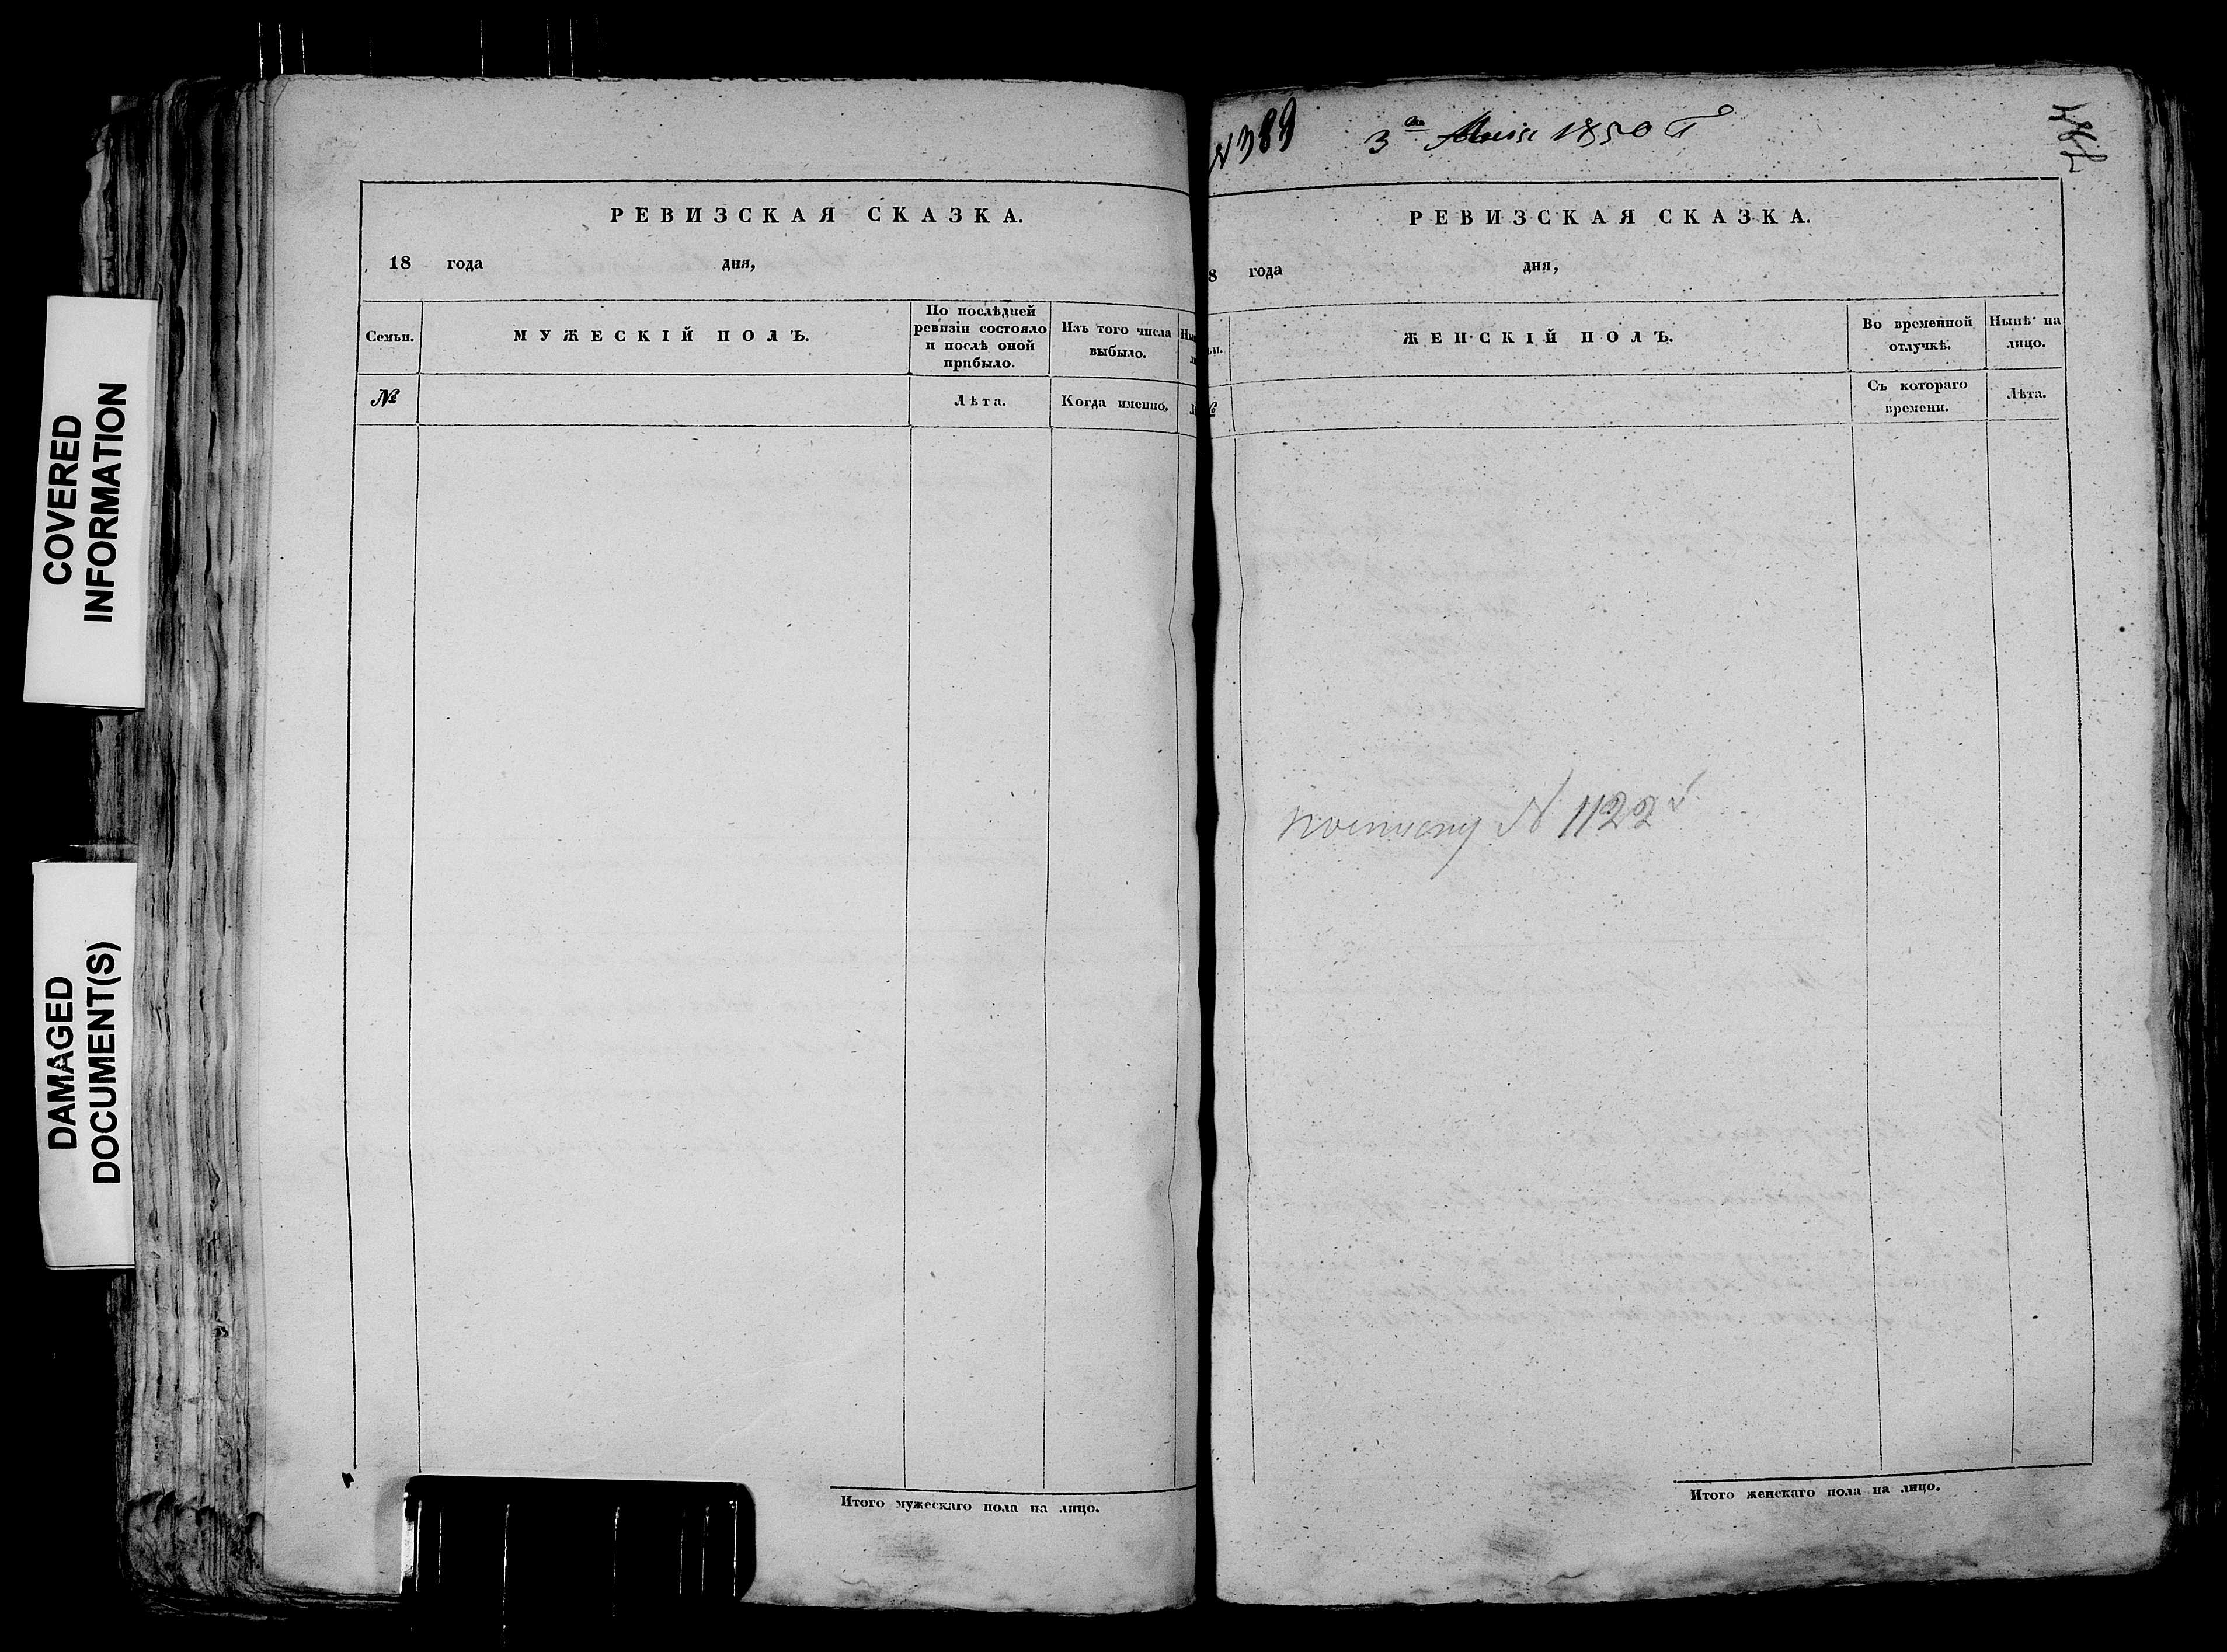 COVERED
INFORMATION
DAMAGED
DOCUMENT(S)
РЕВИЗСКАЯ СКАЗКА.
18 года дня,
Семьи.
МУЖЕСКІЙ ПОЛЪ.
По послѣдней
ревизіи состояло
и послѣ оной
прибыло.
Изъ того числа
выбыло.
№
Лѣта.
Когда именно.
Итого мужескаго пола на лицо.
№ 389
3 Мая 1850 Г
РЕВИЗСКАЯ СКАЗКА.
8 года дня,
ЖЕНСКІЙ ПОЛЪ.
Во временной
отлучкѣ.
Нынѣ на
лицо.
Съ котораго
времени.
Лѣта.
N 1122
Итого женскаго пола на лицо.